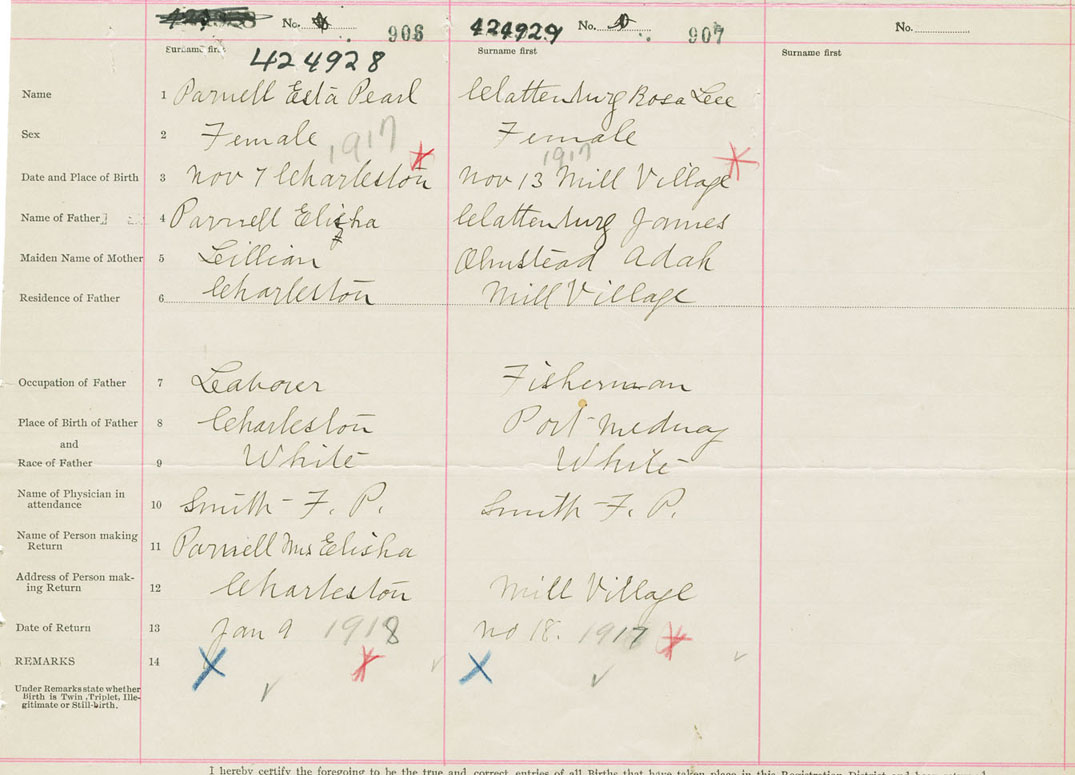 No. 906 424929 No. 907 No.
Surname first Surname first Surname first
424928
Name 1 Parnell Esta Pearl Wattenburg Rosa Lee
Sex 2 Female Female
1917 1917
Date and Place of Birth 3 Nov 7 Charleston Nov 13 Mill Village
Name of Father 4 Parnell Elisha Wattenburg James
Maiden Name of Mother 5 Lillian Olmstead Adah
Residence of Father 6 Charleston Mill Village
Occupation of Father 7 Labourer Fisherman
Place of Birth of Father 8 Charleston Port Medway
and
Race of Father 9 White White
Name of Physician in
attendance 10 Smith - F. P. Smith - F. P.
Name of Person making
Return 11 Parnell Mrs Elisha
Address of Person mak-
ing Return 12 Charleston Mill Village
Date of Return 13 Jan 9 1918 no 18. 1917
REMARKS 14
Under Remarks state whether
Birth is Twin, Triplet, Ille-
gitimate or Still-birth.
I hereby certify the foregoing to be the true and correct entries of all Births that have taken place in this Registration District